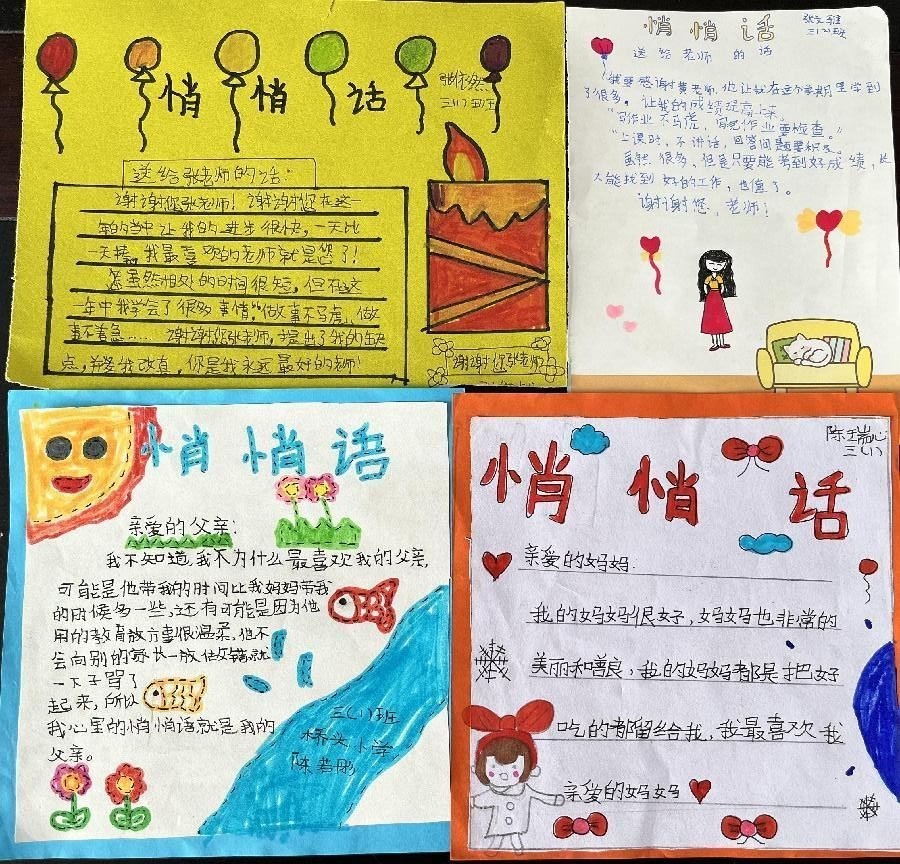 悄 悄 话
三(1)班
送给张老师的话:
谢谢您张老师!谢谢您在这一
年的当中让我的进步很快,一天比
一天棒,我最喜欢的老师就是您了!
您虽然相处的时间很短,但在这
一年中我学会了很多事情“做事不马虎,做
事不着急……谢谢您张老师,提出了我的缺
点,并

我改真,你是我永远最好的老师!
谢谢你张老师
悄 悄 话
三(1)班
送给老师的话
我要感谢黄老师,他让我在这个学期里学到
了很多。让我的成绩提高上来,
“写作业不马虎,写完作业要检查。”
“上课时,不讲话,回答问题要积极。
虽然很多,但是只要能考到好成绩,长
大能找到好的工作,也值了。
谢谢您,老师!
悄 悄 话
亲爱的父亲:
我不知道,我不为什么最喜欢我的父亲,
可能是他带我的时间比我妈妈带我
的时候多一些,还有可能是因为他
用的教育放方事很温柔,他不
会向别的家长一放做错就
一下子骂了
起来,所以
我心里的悄悄话就是我的
父亲。
三(1)班
桥头小学
陈若彤
悄 悄 话
陈瑞心
三(1)
亲爱的妈妈.
我的妈妈很好,妈妈也非常的
美丽和善良,我的妈妈都是把好
吃的都留给我,我最喜欢我
亲爱的妈妈